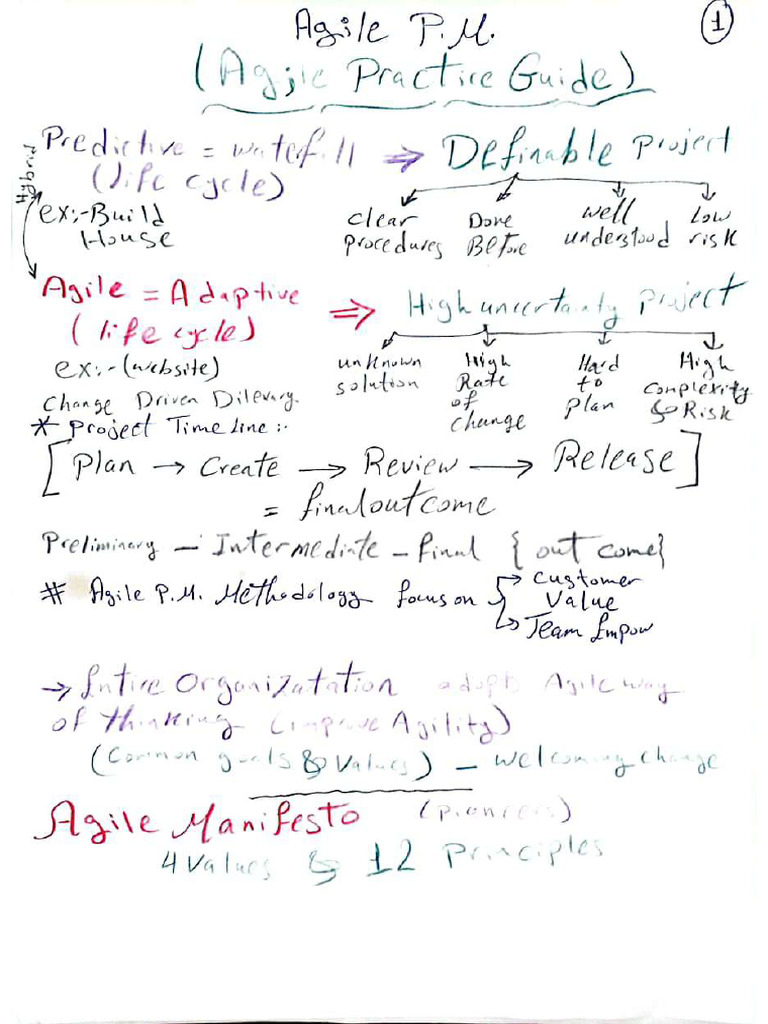 Agile P.M.
1
(Agile Practice Guide)
Predictive = waterfall ⇒ Definable Project
(life cycle)
Hybrid
ex:- Build
House
clear
procedures
Done
Before
well
understood
Low
risk
Agile = Adaptive ⇒ High uncertainty project
(life cycle)
ex:- (website)
unknown
solution
High
Rate
of
change
Hard
to
plan
High
Complexity
& Risk
Change Driven Dilevary.
* Project Time line :-
[Plan → Create → Review → Release]
= final outcome
Preliminary - Intermediate - final {out come}
# Agile P.M. Methodology focus on { → customer
Value
→ Team Empow
→ Entire Organizatation adopts Agile way
of thinking (improve Agility)
(Common goals & Values) - welcoming change
Agile Manifesto (pioneers)
4 Values & 12 Principles